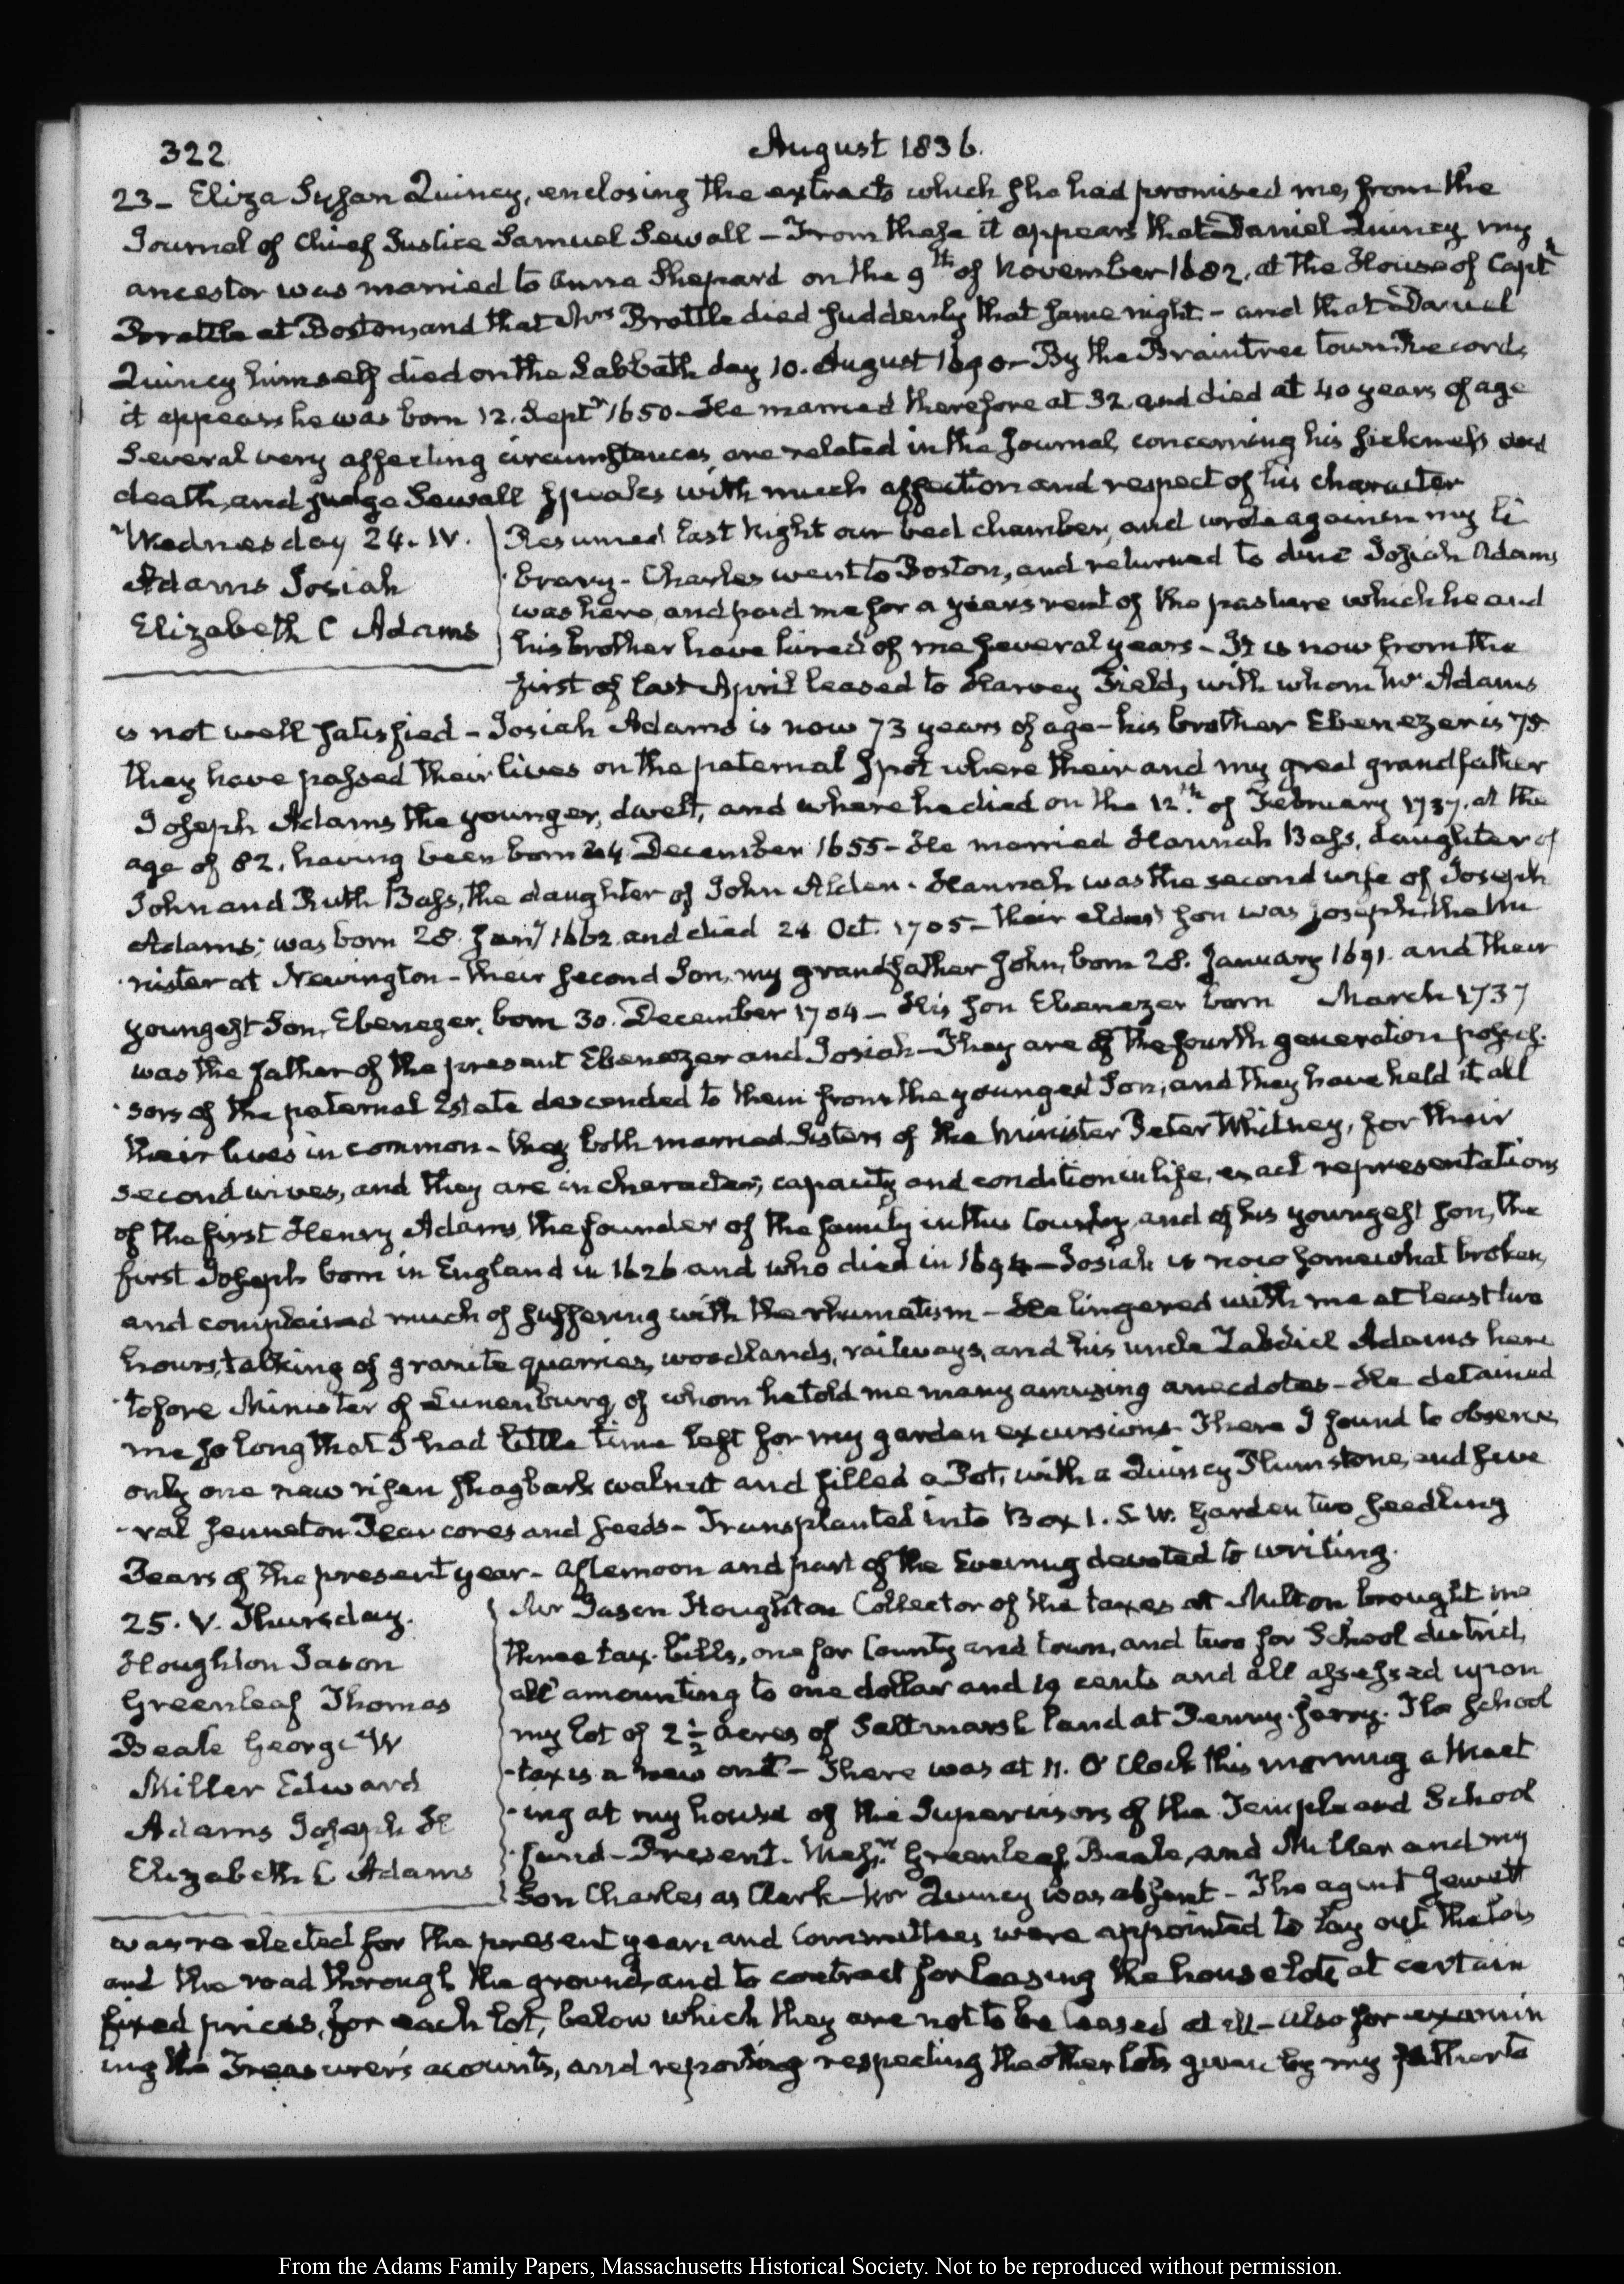 322
August 1836.
23 - Eliza Susan Quincy, enclosing the extracts which she had promised me, from the
Journal of Chief Justice Samuel Sewall - From these it appears that Daniel Quincy my
ancestor was married to Anna Shepard on the 9th of November 1682. at the House of Captn
Brattle at Boston, and that Mrs Brattle died suddenly that same night - and that Daniel
Quincy himself died on the Sabbath day 10. August 1690 - By the Braintree town Records
it appears he was born 12. Septr 1650 - He married therefore at 32 and died at 40 years of age
Several very affecting circumstances are related in the Journal, concerning his sickness and
death, and Judge Sewall speaks with much affection and respect of his character
Wednesday 24. IV.
Adams Josiah
Elizabeth C Adams
Resumed last Night our bed chamber, and wrote again in my li
brary - Charles went to Boston, and returned to dine Josiah Adams
was here, and paid me for a years rent of the pasture which he and
his brother have hired of me several years - It is now from the
first of last April leased to Harvey Field, with whom Mr Adams
is not well satisfied - Josiah Adams is now 73 years of age - his brother Ebenezer is 78
they have passed their lives on the paternal spot where their and my great grandfather
Joseph Adams the younger, dwelt, and where he died on the 12th. of February 1737. at the
age of 82. having been born 24 December 1655 - He married Hannah Bass, daughter of
John and Ruth Bass, the daughter of John Alden. Hannah was the second wife of Joseph
Adams; was born 28. Jany 1662 and died 24 Oct. 1705 - Their eldest son was Joseph, the Mi
nister at Newington - their second Son, my grandfather John, born 28. January 1691. and their
youngest Son, Ebenezer, born 30. December 1704 - His son Ebenezer born March 1737
was the father of the present Ebenezer and Josiah - They are of the fourth generation posses
sors of the paternal Estate descended to them from the youngest Son, and they have held it all
their lives in common - they both married Sisters of the Minister Peter Whitney, for their
second wives, and they are in character, capacity and condition in life, exact representations
of the first Henry Adams, the founder of the family in this Country, and of his youngest son, the
first Joseph born in England in 1626 and who died in 1694 - Josiah is now somewhat broken,
and complained much of suffering with the rhumatism - He lingered with me at least two
hours, talking of granite quarries, woodlands, railways, and his uncle Zabdiel Adams here
tofore Minister of Lunenburg, of whom he told me many amusing anecdotes - He detained
me so long that I had little time left for my garden excursions - There I found to observe
only one new risen shagbark walnut and filled a Pot, with a Quincy Plumstone, and seve
ral Jenneton Pear cores and seeds - Transplanted into Box 1. S. W. Garden two seedling
Pears of the present year - Afternoon and part of the Evening devoted to writing.
25. V. Thursday.
Houghton Jason
Greenleaf Thomas
Beale George W
Miller Edward
Adams Joseph H
Elizabeth C Adams
Mr Jason Houghton Collector of the taxes at Milton brought me
three tax-bills, one for County and town, and two for School district,
all amounting to one dollar and 19 cents and all assessed upon
my lot of 2 1/2 acres of Saltmarsh land at Penny-ferry. The School
tax is a new one - There was at 11. O'Clock this morning a Meet
ing at my house of the Supervisors of the Temple and School
fund - Present. Messrs Greenleaf, Beale, and Miller and my
Son Charles as Clerk - Mr Quincy was absent - The agent Jewett
was re elected for the present year, and Committees were appointed to lay out the lots
and the road through the ground, and to contract for leasing the house lots at certain
fixed prices, for each lot, below which they are not to be leased at all - also for examin
ing the Treasurer's accounts, and reporting respecting the other lots given by my father to
From the Adams Family Papers, Massachusetts Historical Society. Not to be reproduced without permission.